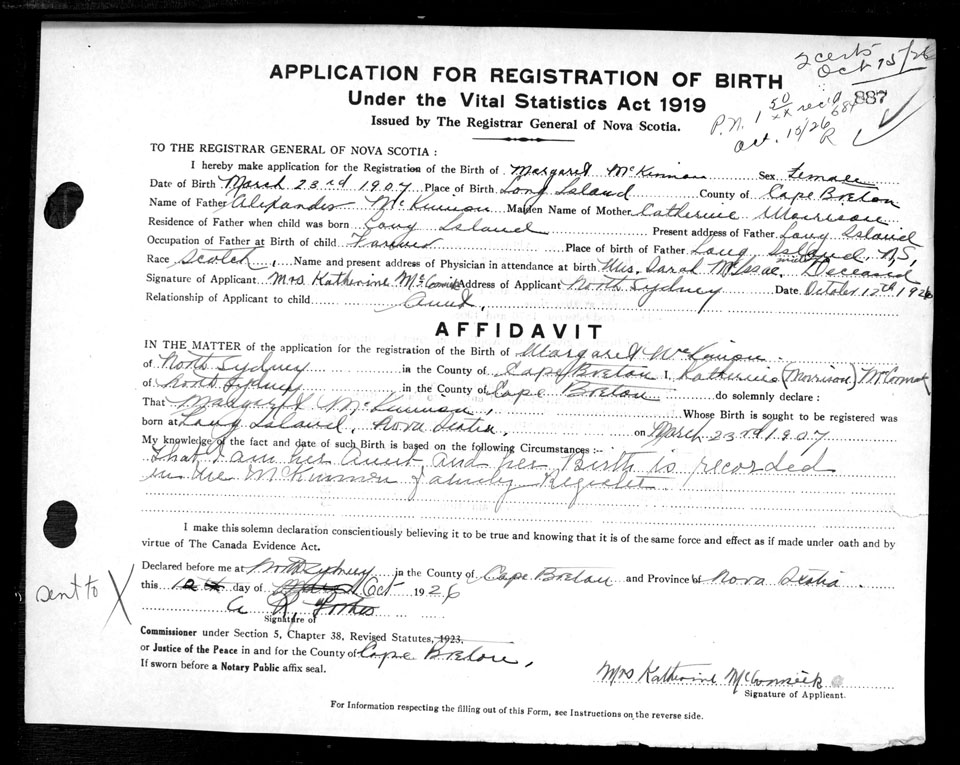 2 certs
Oct 15/26
APPLICATION FOR REGISTRATION OF BIRTH
Under the Vital Statistics Act 1919
887
Issued by The Registrar General of Nova Scotia.
P.N. 1 50/xx rec'd 684
Oct. 15/26 R
TO THE REGISTRAR GENERAL OF NOVA SCOTIA:
I hereby make application for the Registration of the Birth of Margaret McKinnon Sex Female
Date of Birth March 23rd 1907 Place of Birth Long Island County of Cape Breton
Name of Father Alexander McKinnon Maiden Name of Mother Catherine Morrison
Residence of Father when child was born Long Island Present address of Father Long Island
Occupation of Father at Birth of child Farmer Place of birth of Father Long Island N.S,
Race Scotch, Name and present address of Physician in attendance at birth Mrs. Sarah McIsaac Deceased
Signature of Applicant Mrs Katherine McCormick Address of Applicant North Sydney Date October 12th 1926
Relationship of Applicant to child Aunt,
AFFIDAVIT
IN THE MATTER of the application for the registration of the Birth of Margaret McKinnon
of North Sydney in the County of Cape Breton I, Katherine (Morrison) McCormick
of North Sydney in the County of Cape Breton do solemnly declare:
That Margaret McKinnon, Whose Birth is sought to be registered was
born at Long Island, Nova Scotia, on March 23rd 1907
My knowledge of the fact and date of such Birth is based on the following Circumstances:--
That I am her Aunt and her Birth is recorded
in the McKinnon family Register
I make this solemn declaration conscientiously believing it to be true and knowing that it is of the same force and effect as if made under oath and by
virtue of The Canada Evidence Act.
Declared before me at North Sydney in the County of Cape Breton and Province of Nova Scotia.
this 12th day of Oct 1926
sent to X
A R, Forbes
Signature of
Commissioner under Section 5, Chapter 38, Revised Statutes, 1923,
or Justice of the Peace in and for the County of Cape Breton,
If sworn before a Notary Public affix seal.
Mrs Katherine McCormick
Signature of Applicant.
For Information respecting the filling out of this Form, see Instructions on the reverse side.